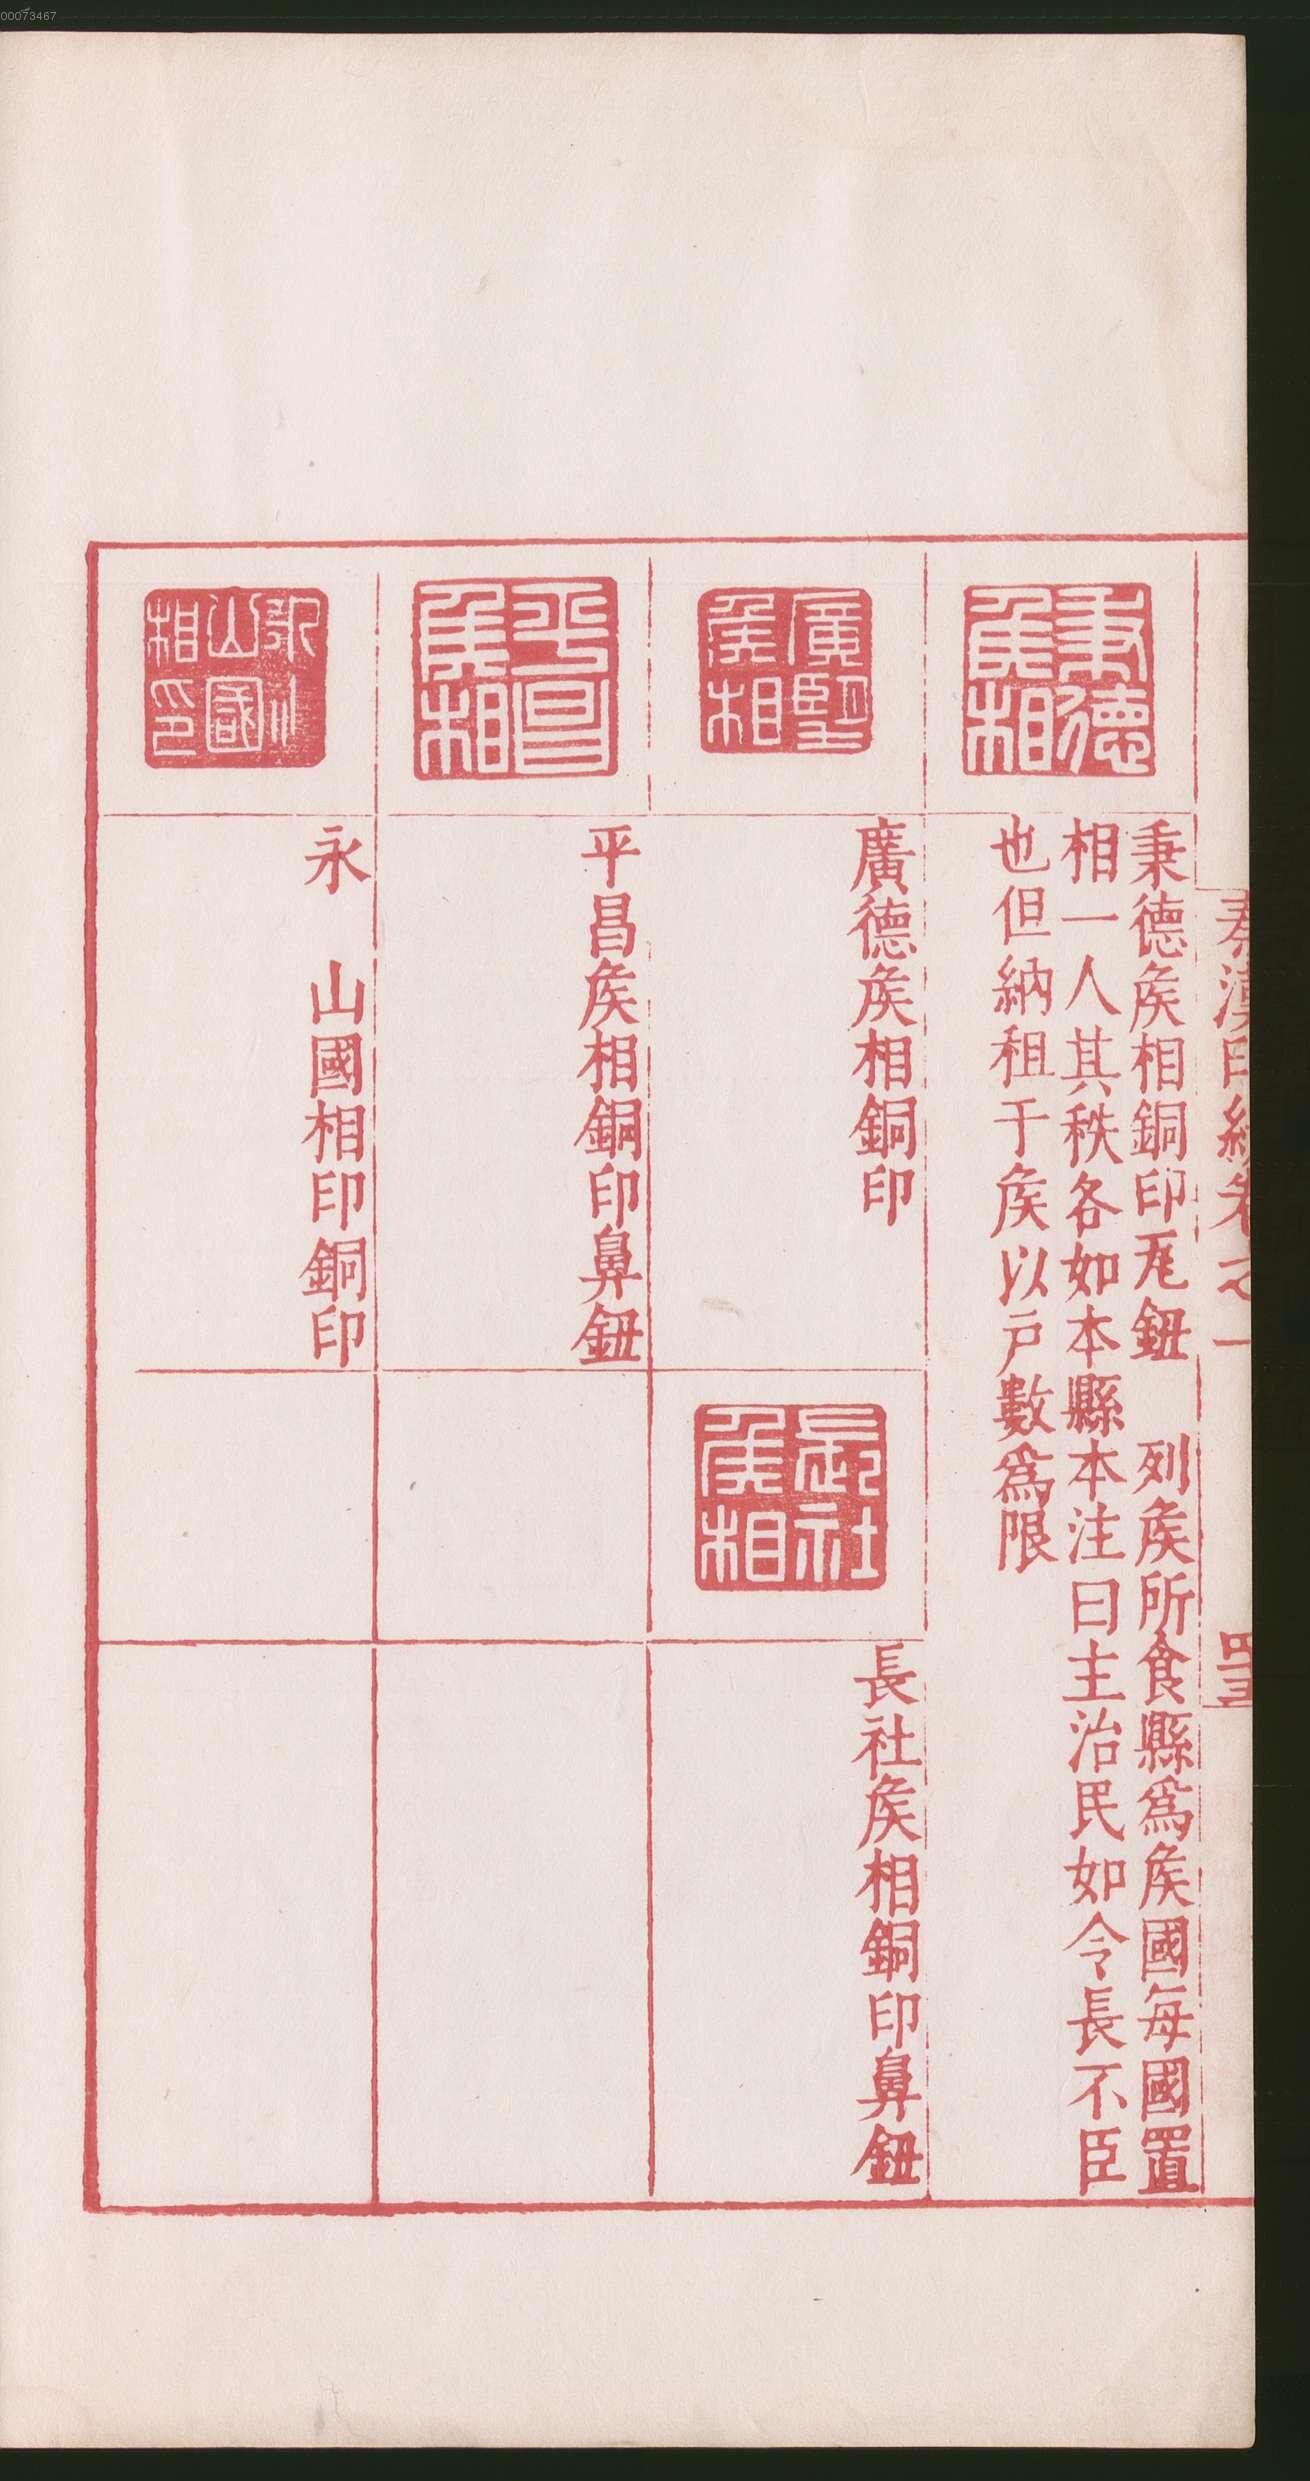 00073467
秦漢印統卷之一
四十三
秉德
矦相
秉德矦相銅印𤓰鈕　列矦所食縣爲矦國每國置
相一人其秩各如本縣本注曰主治民如令長不臣
也但納租于矦以戶數爲限
矦相
廣德矦相銅印
長社
矦相
長社矦相銅印鼻鈕
平昌
矦相
平昌矦相銅印鼻鈕
山國
相印
永　山國相印銅印